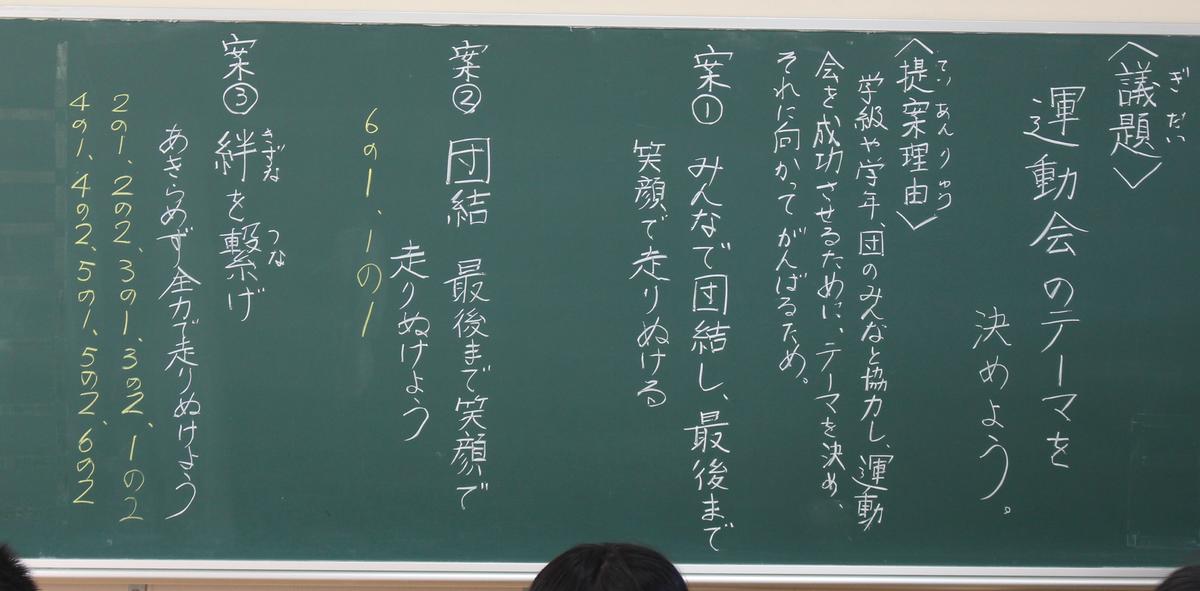 〈議題〉
ぎだい
運動会のテーマを
決めよう。
〈提案理由〉
ていあんりゆう
学級や学年、団のみんなと協力し、運動
会を成功させるために、テーマを決め、
それに向かってがんばるため。
案① みんなで団結し、最後まで
笑顔で走りぬける
案② 団結 最後まで笑顔で
走りぬけよう
6の1、1の1
案③ 絆を繋げ
きずな つな
あきらめず全力で走りぬけよう
2の1、2の2、3の1、3の2、1の2
4の1、4の2、5の1、5の2、6の2